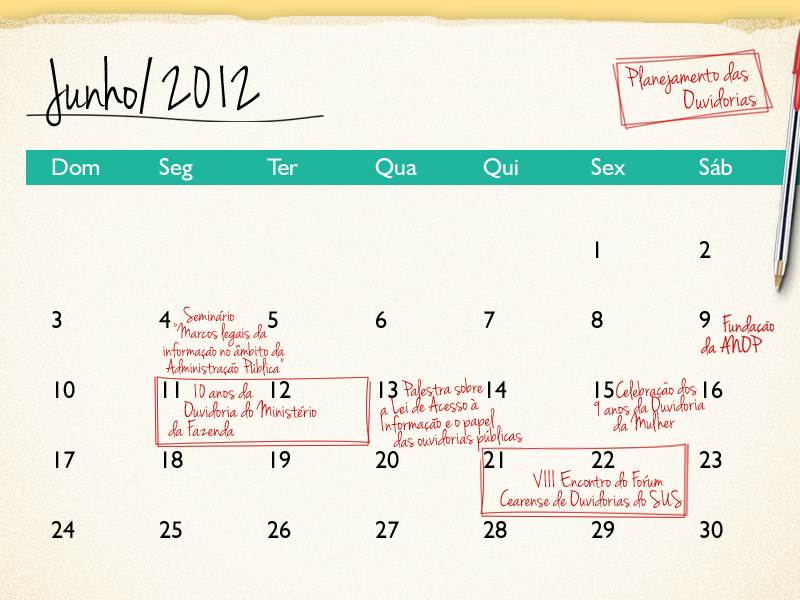 Junho/2012
Planejamento das
Ouvidorias
Dom Seg Ter Qua Qui Sex Sáb
1 2
3 4 5 6 7 8 9
Seminário
"Marcos legais da
informação no âmbito da
Administração Pública"
Fundação
da ANOP
10 11 12 13 14 15 16
10 anos da
Ouvidoria do Ministério
da Fazenda
Palestra sobre
a Lei de Acesso à
Informação e o papel
das ouvidorias públicas
Celebração dos
9 anos da Ouvidoria
da Mulher
17 18 19 20 21 22 23
VIII Encontro do Forúm
Cearense de Ouvidorias do SUS
24 25 26 27 28 29 30